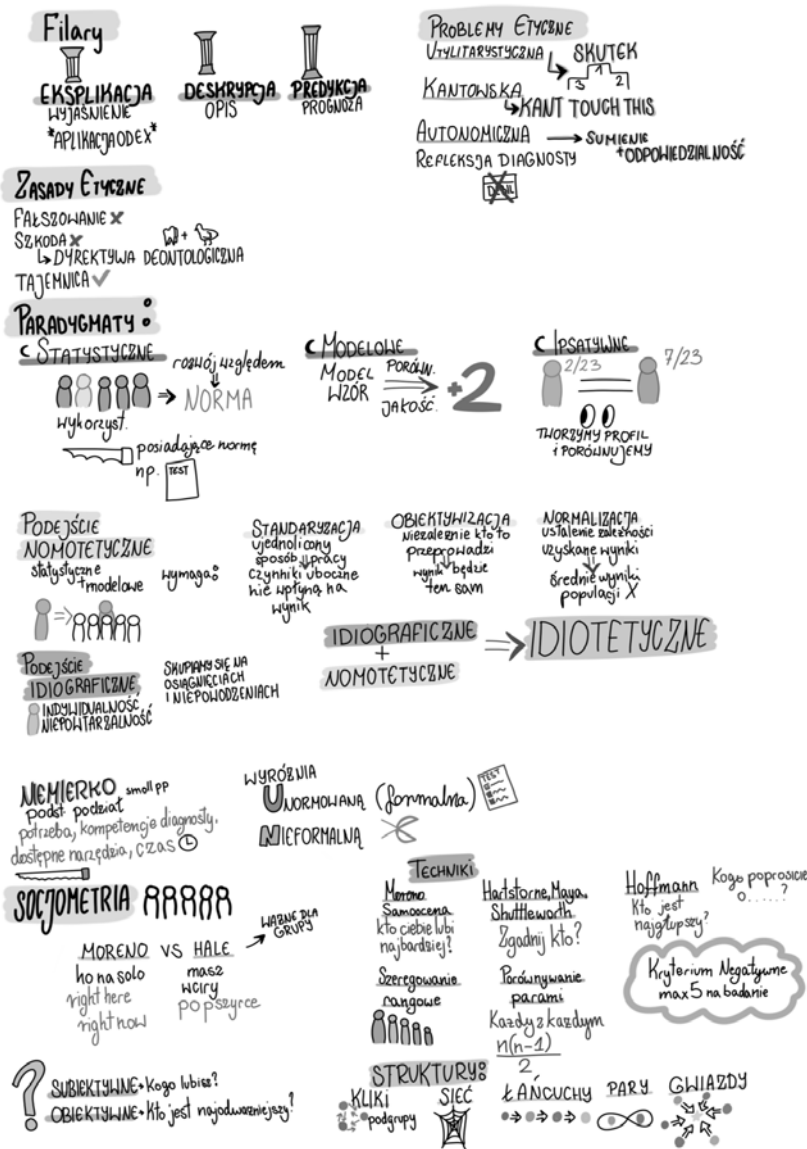 Filary
EKSPLIKACJA
WYJAŚNIENIE
*APLIKACJA ODEX*
DESKRYPCJA
OPIS
PREDYKCJA
PROGNOZA
PROBLEMY ETYCZNE
UTYLITARYSTYCZNA
SKUTEK
3 1 2
KANTOWSKA
KANT TOUCH THIS
AUTONOMICZNA → SUMIENIE
+ODPOWIEDZIALNOŚĆ
REFLEKSJA DIAGNOSTY
ZASADY ETYCZNE
FAŁSZOWANIE X
SZKODA X
DYREKTYWA DEONTOLOGICZNA
TAJEMNICA ✓
PARADYGMATY:
STATYSTYCZNE
rozwój względem
NORMA
wykorzyst.
posiadające normę
np. TEST
MODELOWE
MODEL
WZÓR
PORÓWN.
JAKOŚĆ.
+2
IPSATYWNE
2/23
7/23
TWORZYMY PROFIL
i PORÓWNUJEMY
PODEJŚCIE
NOMOTETYCZNE
statystyczne
+modelowe
wymaga:
STANDARYZACJA
ujednolicony
sposób pracy
czynniki uboczne
nie wpłyną na
wynik
OBIEKTYWIZACJA
Niezależnie kto to
przeprowadzi
wynik będzie
ten sam
NORMALIZACJA
ustalenie zależności
uzyskane wyniki
średnie wyniki
populacji X
IDIOGRAFICZNE
+
NOMOTETYCZNE
IDIOTETYCZNE
PODEJŚCIE
IDIOGRAFICZNE
INDYWIDUALNOŚĆ
NIEPOWTARZALNOŚĆ
SKUPIAMY SIĘ NA
OSIĄGNIĘCIACH
I NIEPOWODZENIACH
NIEMIERKO smoll pp
podst podział
potrzeba, kompetencje diagnosty,
dostępne narzędzia, czas
WYRÓŻNIA
UNORMOWANĄ (formalna)
TEST
NIEFORMALNĄ
SOCJOMETRIA
MORENO VS HALE
WAŻNE DLA
GRUPY
ho na solo
right here
right now
masz
wciry
po pszyrce
TECHNIKI
Moreno
Samoocena
kto ciebie lubi
najbardziej?
Hartstorne, Maya,
Shuttleworth
Zgadnij kto?
Hoffmann
Kto jest
najgłupszy?
Kogo poprosicie
o......?
Szeregowanie
rangowe
Porównywanie
parami
Każdy z każdym
n(n-1)
2
Kryterium Negatywne
max 5 na badanie
?
SUBIEKTYWNE→Kogo lubisz?
OBIEKTYWNE→Kto jest najodważniejszy?
STRUKTURY:
KLIKI
podgrupy
SIEĆ
ŁAŃCUCHY
PARY
GWIAZDY